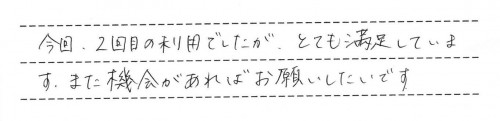 今回、2回目の利用でしたが、とても満足していま
す。また機会があればお願いしたいです